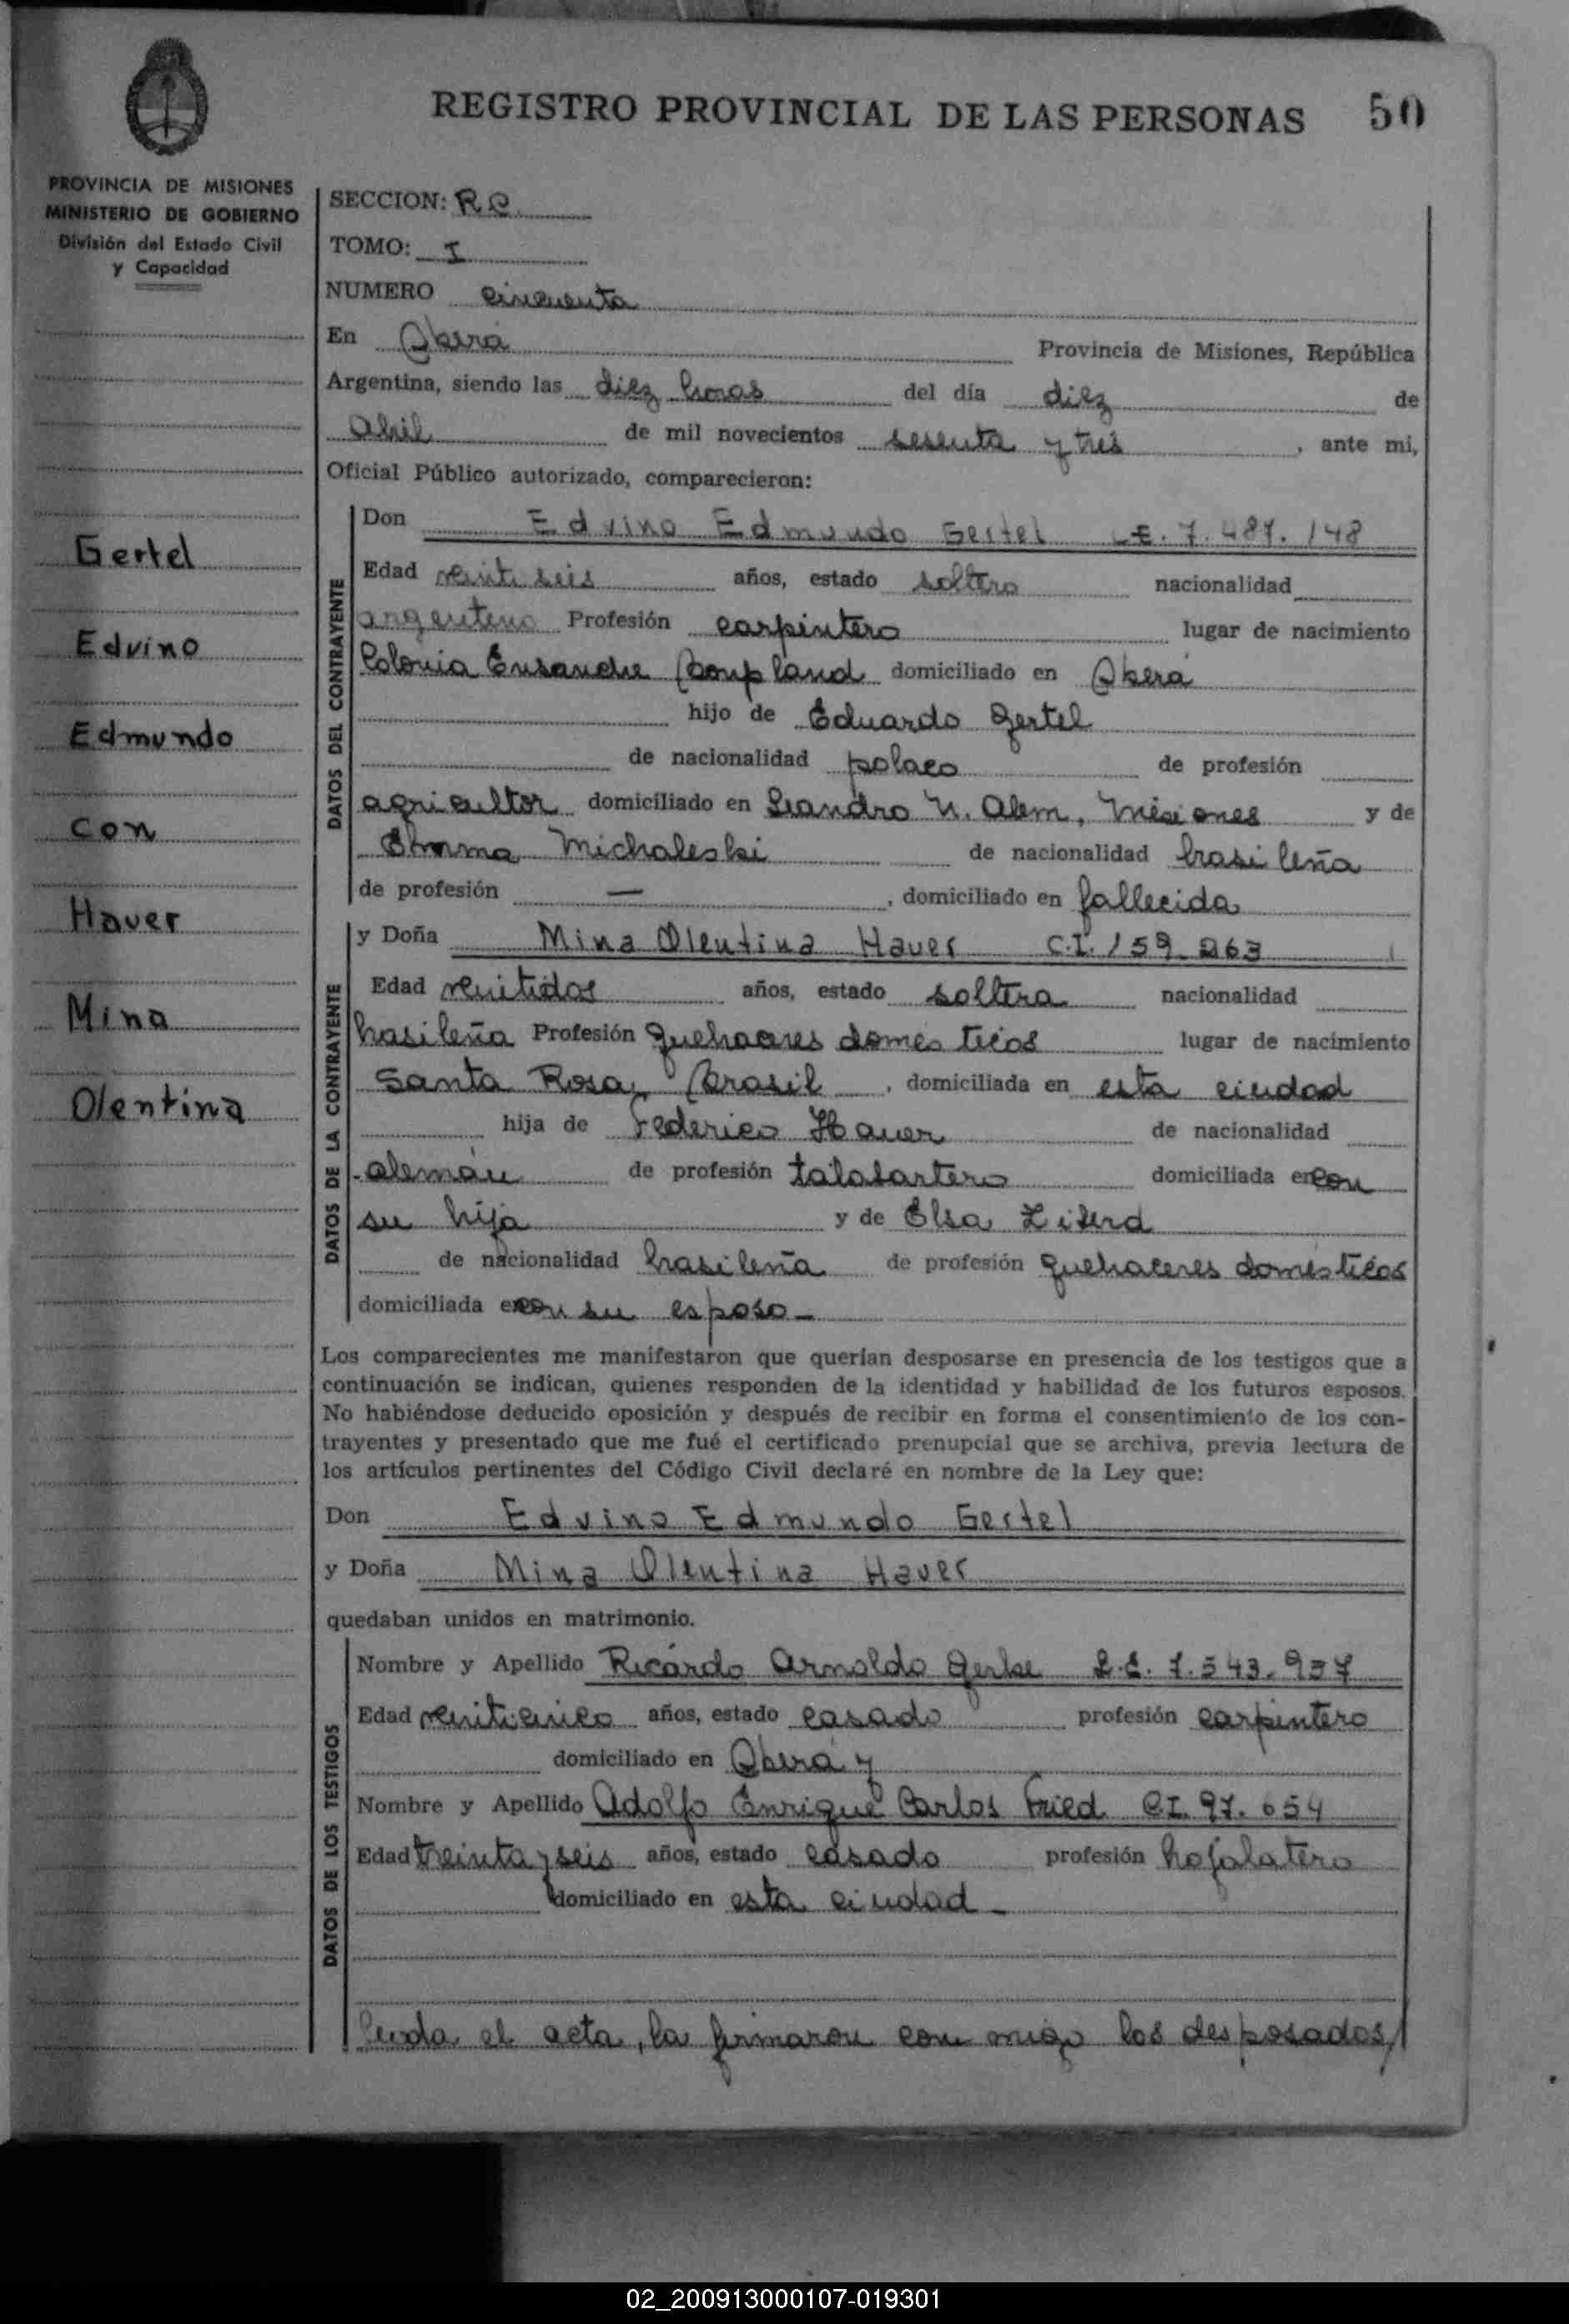 REGISTRO PROVINCIAL DE LAS PERSONAS 50
PROVINCIA DE MISIONES
MINISTERIO DE GOBIERNO
División del Estado Civil
y Capacidad
Gertel
Edvino
Edmundo
con
Haver
Mina
Olentina
SECCION: R.C.
TOMO: I
NUMERO cincuenta
En Oberá Provincia de Misiones, República
Argentina, siendo las diez horas del día diez de
Abril de mil novecientos sesenta y tres, ante mi,
Oficial Público autorizado, comparecieron:
DATOS DEL CONTRAYENTE
Don Edvino Edmundo Gertel L.E. 7.487.148
Edad veintiseis años, estado soltero nacionalidad
argentino Profesión carpintero lugar de nacimiento
Colonia Ensanche Bonpland domiciliado en Oberá
hijo de Eduardo Gertel
de nacionalidad polaco de profesión
agricultor domiciliado en Leandro N. Alem, Misiones y de
Emma Michaleski de nacionalidad brasileña
de profesión —, domiciliado en fallecida
DATOS DE LA CONTRAYENTE
y Doña Mina Olentina Haver C.I. 159.263
Edad veintidos años, estado soltera nacionalidad
brasileña Profesión quehaceres domesticos lugar de nacimiento
Santa Rosa, Brasil, domiciliada en esta ciudad
hija de Federico Hauer de nacionalidad
alemán de profesión talabartero domiciliada en con
su hija y de Elsa
de nacionalidad brasileña de profesión quehaceres domésticos
domiciliada en con su esposo—
Los comparecientes me manifestaron que querían desposarse en presencia de los testigos que a
continuación se indican, quienes responden de la identidad y habilidad de los futuros esposos.
No habiéndose deducido oposición y después de recibir en forma el consentimiento de los con-
trayentes y presentado que me fué el certificado prenupcial que se archiva, previa lectura de
los artículos pertinentes del Código Civil declaré en nombre de la Ley que:
Don Edvino Edmundo Gertel
y Doña Mina Olentina Haver
quedaban unidos en matrimonio.
DATOS DE LOS TESTIGOS
Nombre y Apellido Ricardo Arnoldo Gerke L.E. 7.543.937
Edad veinticinco años, estado casado profesión carpintero
domiciliado en Oberá y
Nombre y Apellido Adolfo Enrique Carlos Fried C.I. 97.654
Edad treinta y seis años, estado casado profesión hojalatero
domiciliado en esta ciudad—
Leida el acta, la firmaron con migo los desposados,
02_200913000107-019301